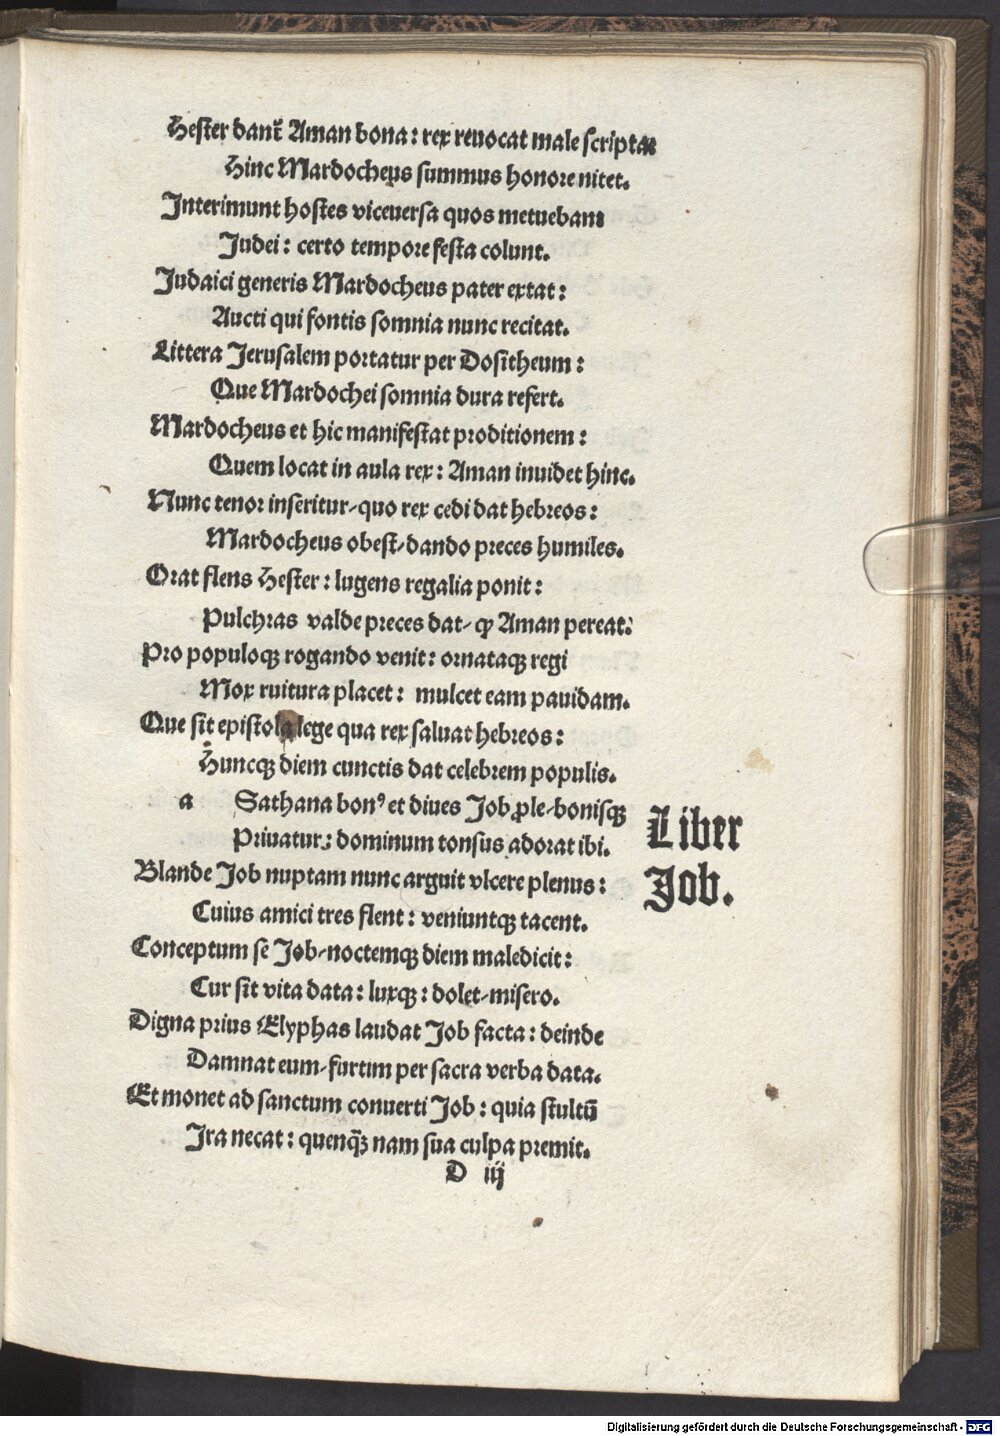 Hester dant᷑ Aman bona: rex reuocat male scripta:
Hinc Mardocheus summus honore nitet.
Interimunt hostes viceuersa quos metuebant
Judei: certo tempore festa colunt.
Judaici generis Mardocheus pater extat:
Aucti qui fontis somnia nunc recitat.
Littera Jerusalem portatur per Dositheum:
Que Mardochei somnia dura refert.
Mardocheus et hic manifestat proditionem:
Quem locat in aula rex: Aman inuidet hinc.
Nunc tenor inseritur/quo rex cedi dat hebreos:
Mardocheus obest/dando preces humiles.
Orat flens Hester: lugens regalia ponit:
Pulchras valde preces dat/ ꝙ Aman pereat:
Pro populoqꝫ rogando venit: ornataqꝫ regi
Mox ruitura placet: mulcet eam pauidam.
Que sit epistola lege qua rex saluat hebreos:
Huncqꝫ diem cunctis dat celebrem populis.
a Sathana bonꝰ et diues Job ꝓle/bonisqꝫ
Priuatur: dominum tonsus adorat ibi.
Liber
Job.
Blande Job nuptam nunc arguit vlcere plenus:
Cuius amici tres flent: veniuntqꝫ tacent.
Conceptum se Job/noctemqꝫ diem maledicit:
Cur sit vita data: luxqꝫ: dolet/misero.
Digna prius Elyphas laudat Job facta: deinde
Damnat eum/furtim per sacra verba data.
Et monet ad sanctum conuerti Job: quia stultū
Ira necat: quenqꝫ̄ nam sua culpa premit.
D iij
Digitalisierung gefördert durch die Deutsche Forschungsgemeinschaft - DFG